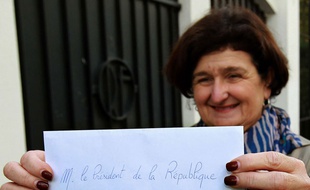 M. le Président de la République